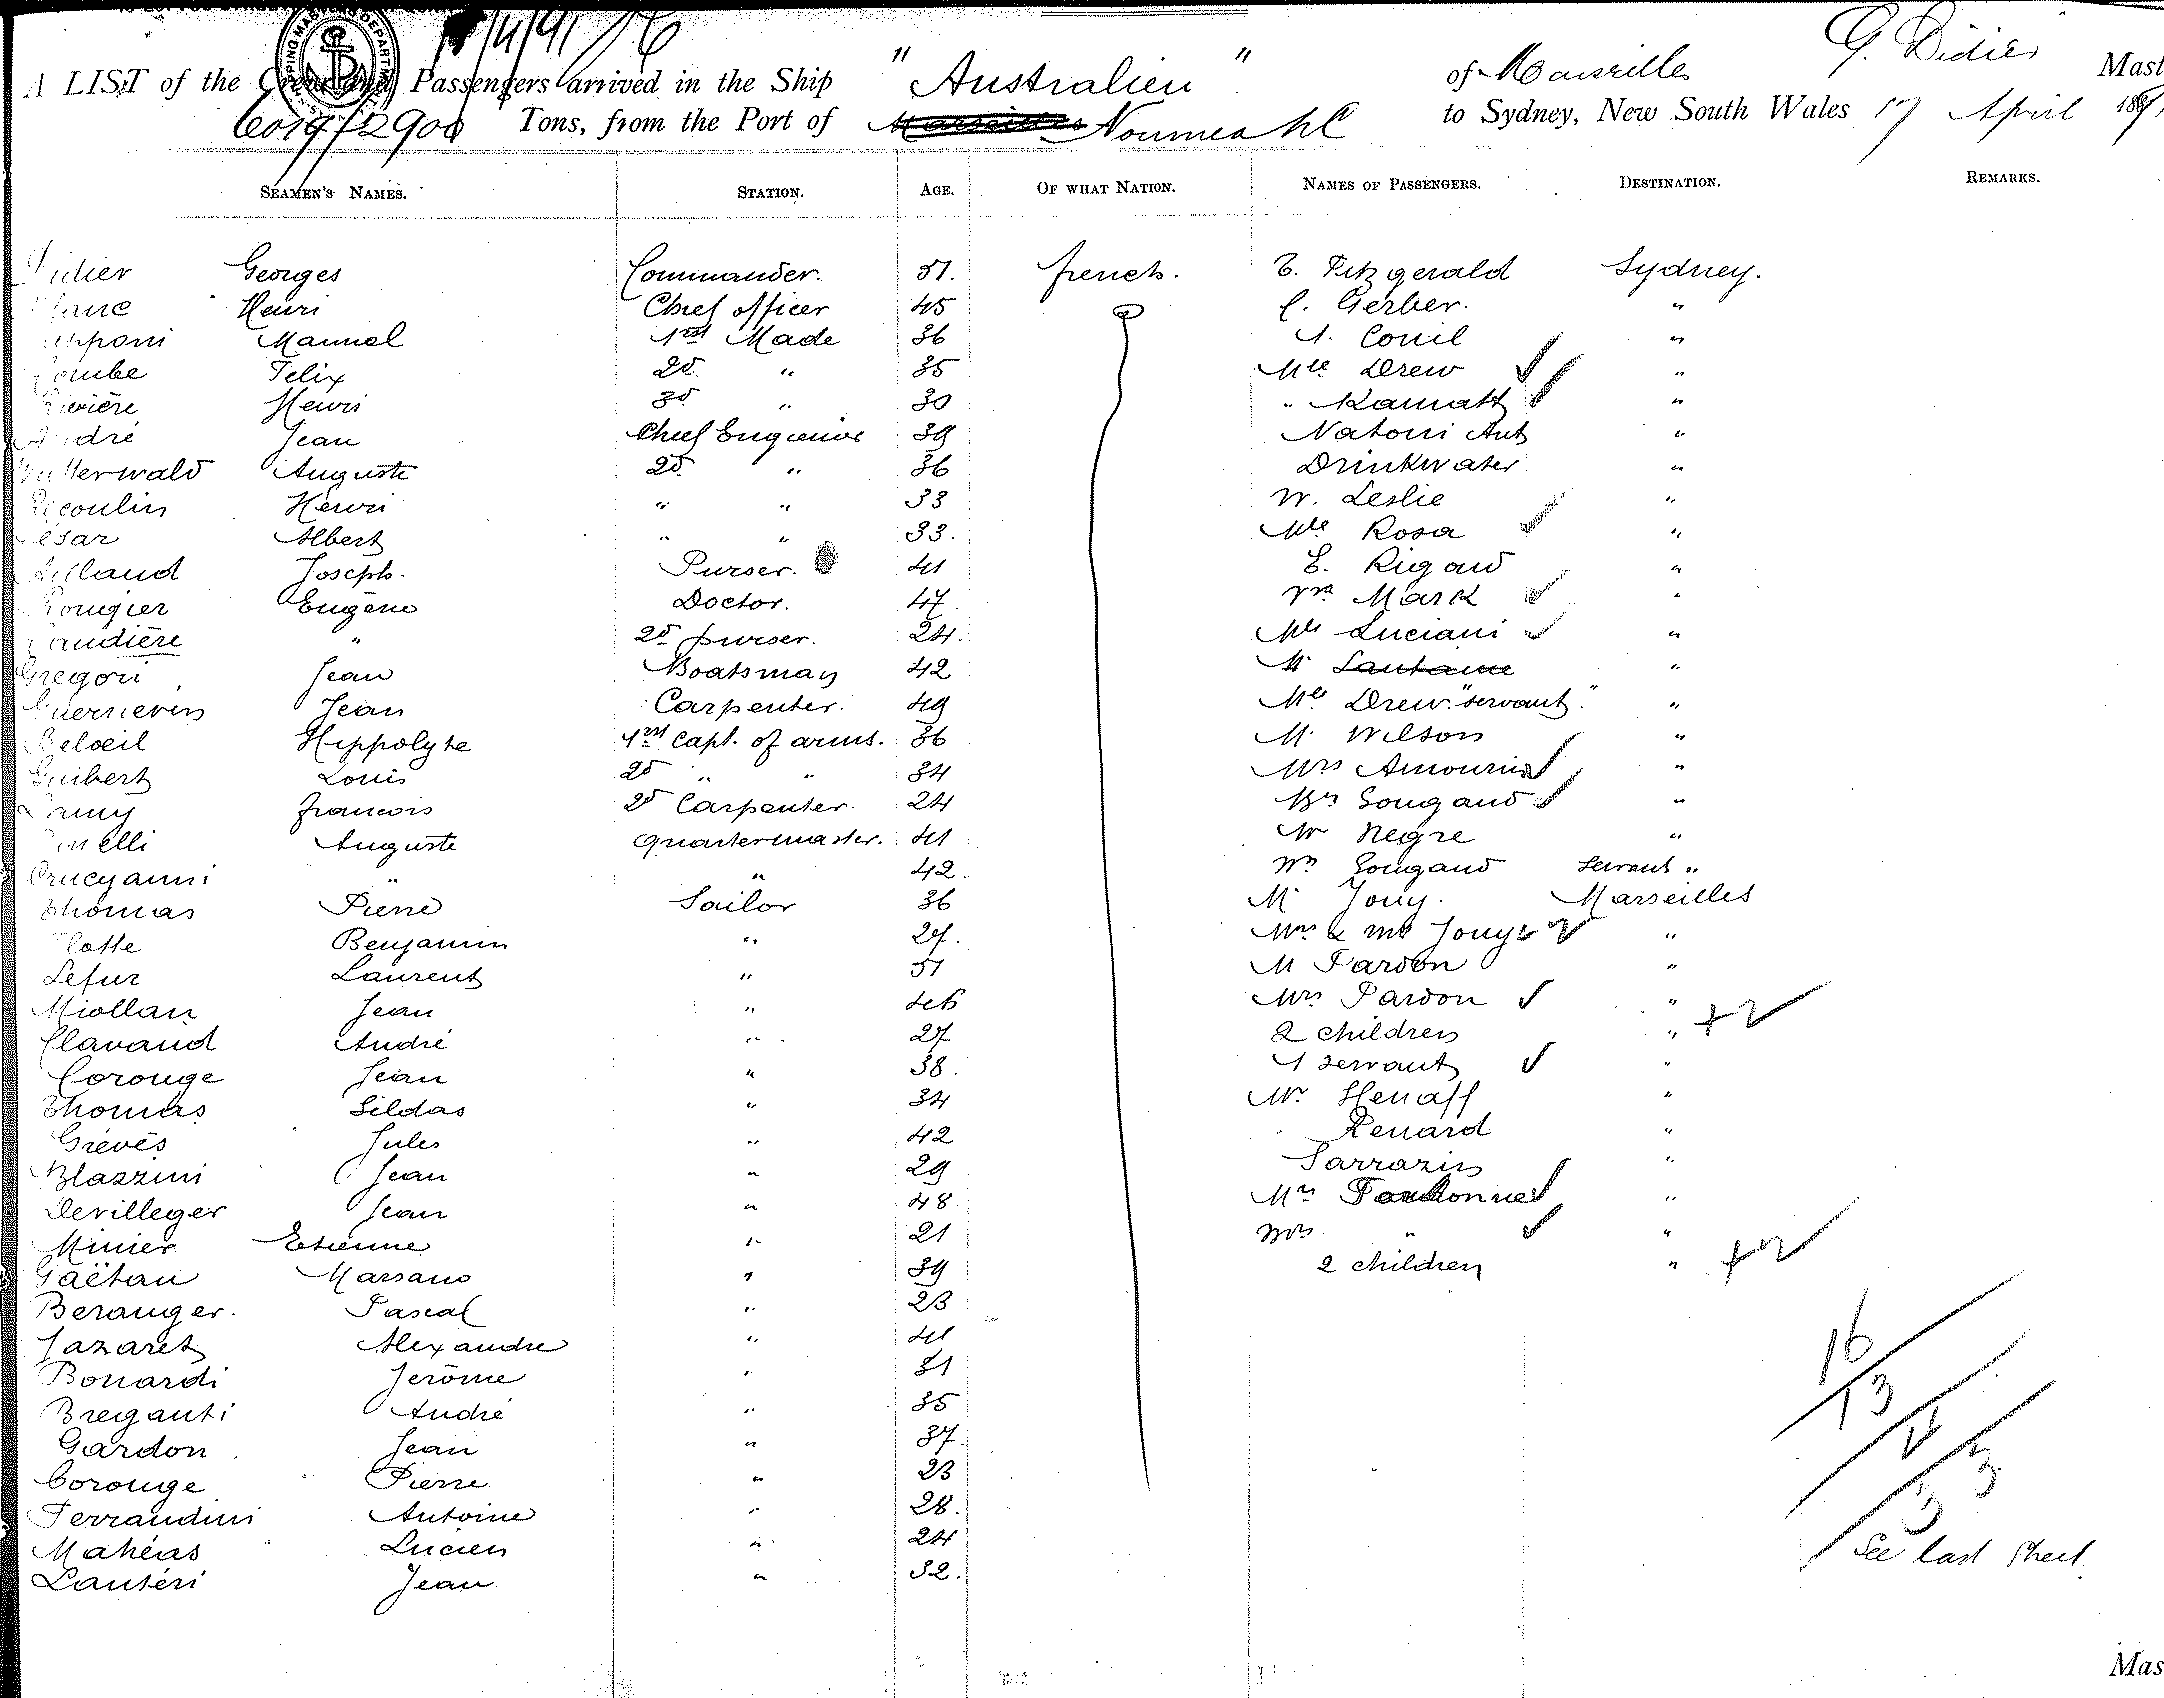 G. Didier Mast
A LIST of the Crew and Passengers arrived in the Ship "Australien" of Marseilles
6019/2900 Tons, from the Port of Noumea NC to Sydney, New South Wales 17 April 189
SEAMEN'S NAMES. STATION. AGE. OF WHAT NATION. NAMES OF PASSENGERS. DESTINATION. REMARKS.
Didier Georges Commander. 51. french. E. Fitzgerald Sydney.
Henri Chief officer 45 C. Gerber. "
Manuel 1st Made 36 A. Conil "
Felix 2d " 35 Mlle Drew "
Rivière Henri 3d " 30 " Kamatt "
André Jean Chief Engineer 39 Natoni Ant "
Auguste 2d " 36 Drinkwater "
Henri " " 33 W. Leslie "
César Albert " " 33. Mlle Rosa "
Joseph. Purser. 41 E. Rigaud "
Rougier Eugène Doctor. 47. Mrs Mark "
" 2d purser. 24. Mlle Luciani "
Gregori Jean Boatsman 42 M. Lautaine "
Jean Carpenter. 49 Mlle Drew "servant" "
Beloeil Hippolyte 1st Capt. of arms. 36 M. Wilson "
Guibert Louis 2d " " 34 Mrs "
francois 2d Carpenter. 24 Mrs Gougaud "
Auguste Quartermaster. 41 Mr Negre "
" " 42. Mrs Gougaud servant "
Thomas Pierre Sailor 36 M. Jouy. Marseilles
Benjamin " 27. "
Lefur Laurent " 51 M Pardon "
Miollan Jean " 46 Mrs Pardon "
Clavaud André " 27 2 children " +2
Corouge Jean " 38. 1 servant "
Thomas Gildas " 34 Mr Henaff "
Grèvès Jules " 42 Renard "
Blazzini Jean " 29 Sarrazin "
Devilleger Jean " 48 Mrs "
Minier Etienne " 21 Mrs " "
Gaëtan Marsano " 39 2 children " +2
Beranger. Pascal " 23
Lazaret Alexandre " 41
Bonardi Jerôme " 31
Breganti André " 35
Gardon Jean " 37.
Corouge Pierre " 23
Ferrandini Antoine " 28.
Mahéas Lucien " 24
Lantéri Jean " 32.
16
13
See last sheet.
Mas